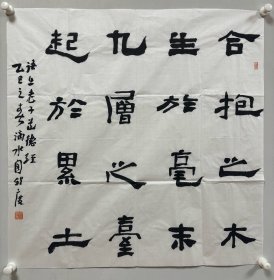 合抱之木
生於毫末
九層之臺
起於累土
語出老子道德經
乙巳之春滴水園